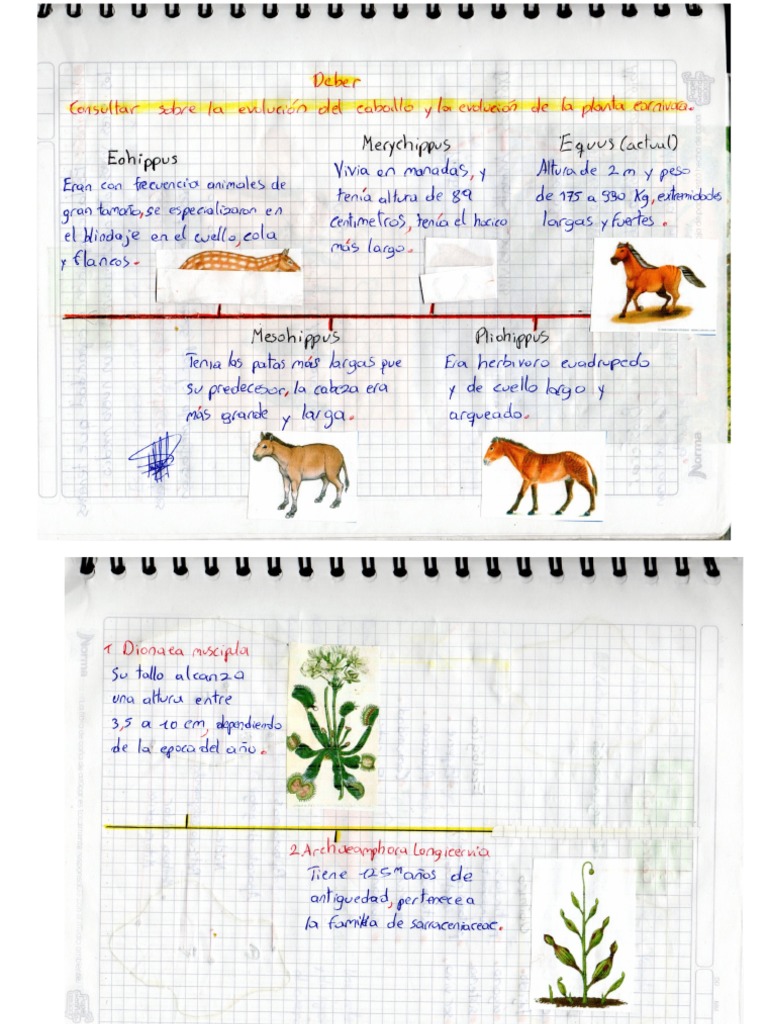 Deber
Consultar sobre la evolución del caballo y la evolución de la planta carnivora.
Eohippus
Eran con frecuencia animales de
gran tamaño, se especializaron en
el blindaje en el cuello, cola
y flancos.
Merychippus
Vivia en manadas, y
tenía altura de 89
centimetros, tenía el hocico
más largo.
Equus (actual)
Altura de 2 m y peso
de 175 a 990 Kg, extremidades
largas y fuertes.
Mesohippus
Tenia las patas más largas que
su predecesor, la cabeza era
más grande y larga.
Pliohippus
Era herbivoro cuadrupedo
y de cuello largo y
arqueado.
Norma
1 Dionaea muscipla
Su tallo alcanza
una altura entre
3,5 a 10 cm, dependiendo
de la epoca del año.
Norma
2. Archaeamphora Longicervia
Tiene 125 M años de
antiguedad, pertenece a
la familia de sarraceniaceae.